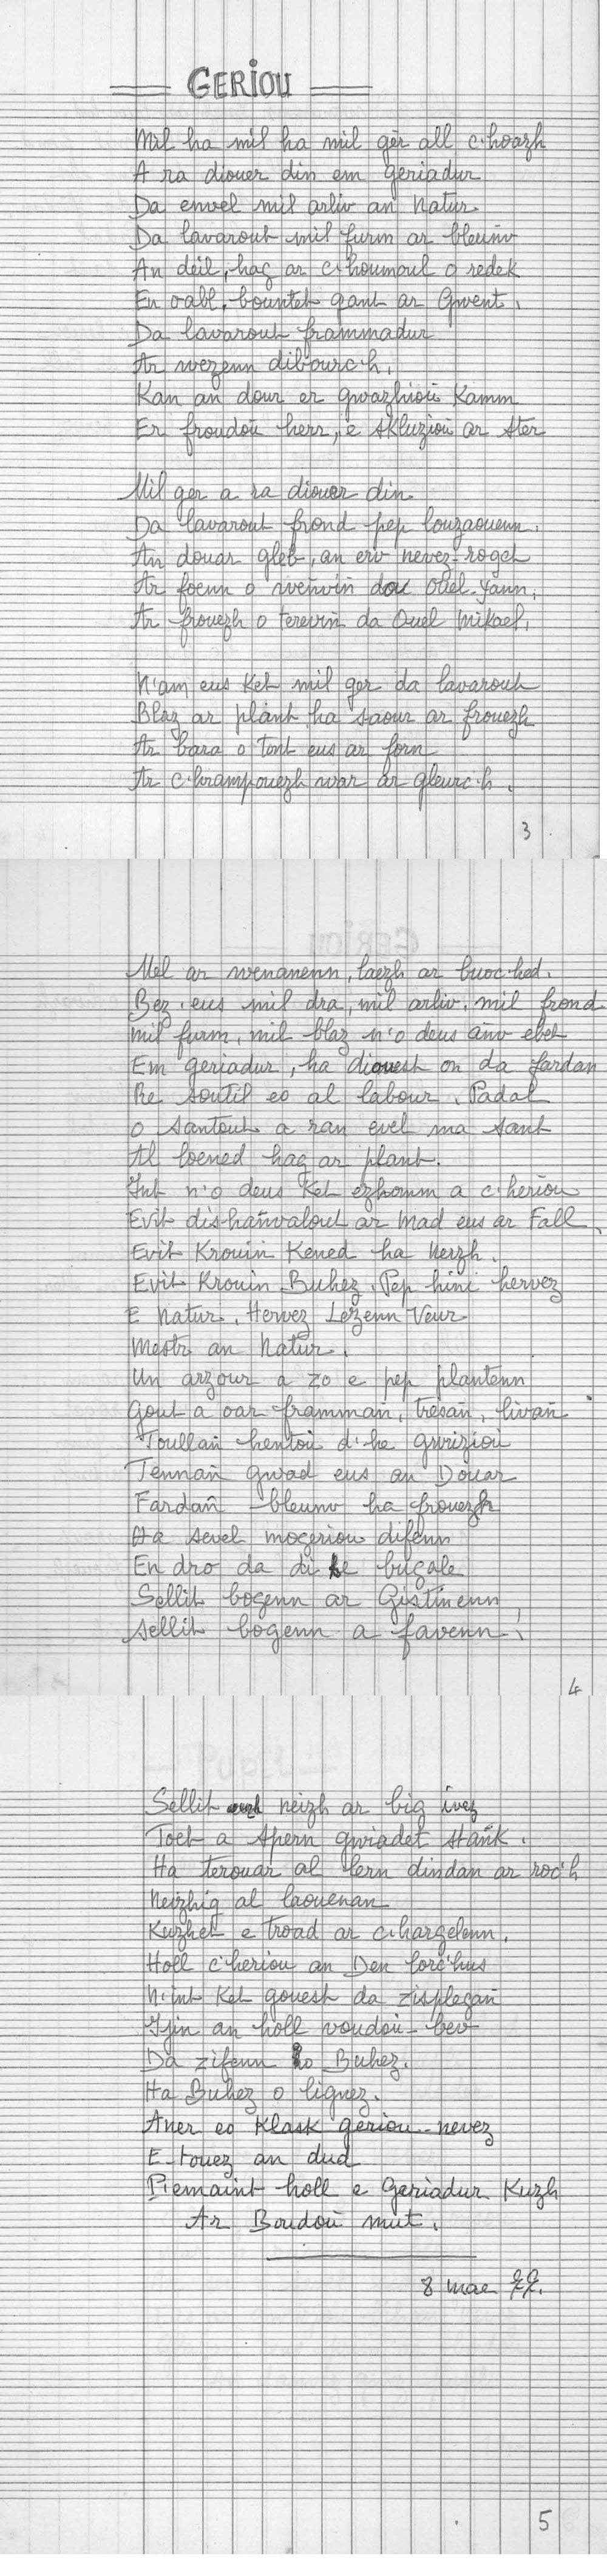 GERIOU
Mil ha mil ha mil gêr all c'hoazh
A ra diouer din em geriadur
Da envel mil arliv an Natur
Da lavarout mil furm ar bleunv
An deil, hag ar c'houmoul o redek
En oabl, bountet gant ar Gwent,
Da lavarout frammadur
Ar wezenn dibourc'h,
Kan an dour er gwazhioù Kamm
Er froudoù herr, e skluzioù ar ster
Mil ger a ra diouer din
Da lavarout frond pep louzaouenn.
An douar gleb, an erv nevez-roget
Ar foenn o weñviñ da Ouel-Yann,
Ar frouezh o tereviñ da Ouel Mikael,
N'am eus Ket mil ger da lavarout
Blaz ar plant ha saour ar frouezh
Ar bara o tont eus ar forn
Ar c'hrampouezh war ar gleurc'h.
3
Mel ar wenanenn, laezh ar buoc'hed.
Bez'eus mil dra, mil arliv, mil frond
mil furm, mil blaz n'o deus anv ebet
Em geriadur, ha diouest on da fardan
Re soutil eo al labour. Padal
O santout a ran evel ma sant
Al loened hag ar plant.
Int n'o deus Ket ezhomm a c'heriou
Evit dishañvalout ar Mad eus ar Fall,
Evit Krouiñ Kened ha Nerzh.
Evit Krouiñ Buhez. Pep hini hervez
E Natur. Hervez Lezenn Veur
Mestr an Natur.
Un arzour a zo e pep plantenn
Gout a oar frammañ, tresañ, livañ
Toullañ hentoù d'he gwrizioù
Tennañ gwad eus an Douar
Fardañ bleunv ha frouezh
Ha sevel mogeriou difenn
En dro da di he bugale
Sellit bogenn ar Gistinenn
Sellit bogenn a favenn!
4
Sellit neizh ar big ivez
Toet a spern gwiadet stank.
Ha terouar al lern dindan ar roc'h
Neizhig al laouenan
Kuzhet e troad ar c'hargelenn.
Holl c'heriou an Den forc'hus
N'int Ket gouest da zisplegañ
Ijin an holl voudoù-bev
Da zifenn o Buhez.
Ha Buhez o lignez.
Aner eo Klask geriou-nevez
E-touez an dud
Pemaint holl e Geriadur Kuzh
Ar Boudoù mut.
8 mae 99.
5